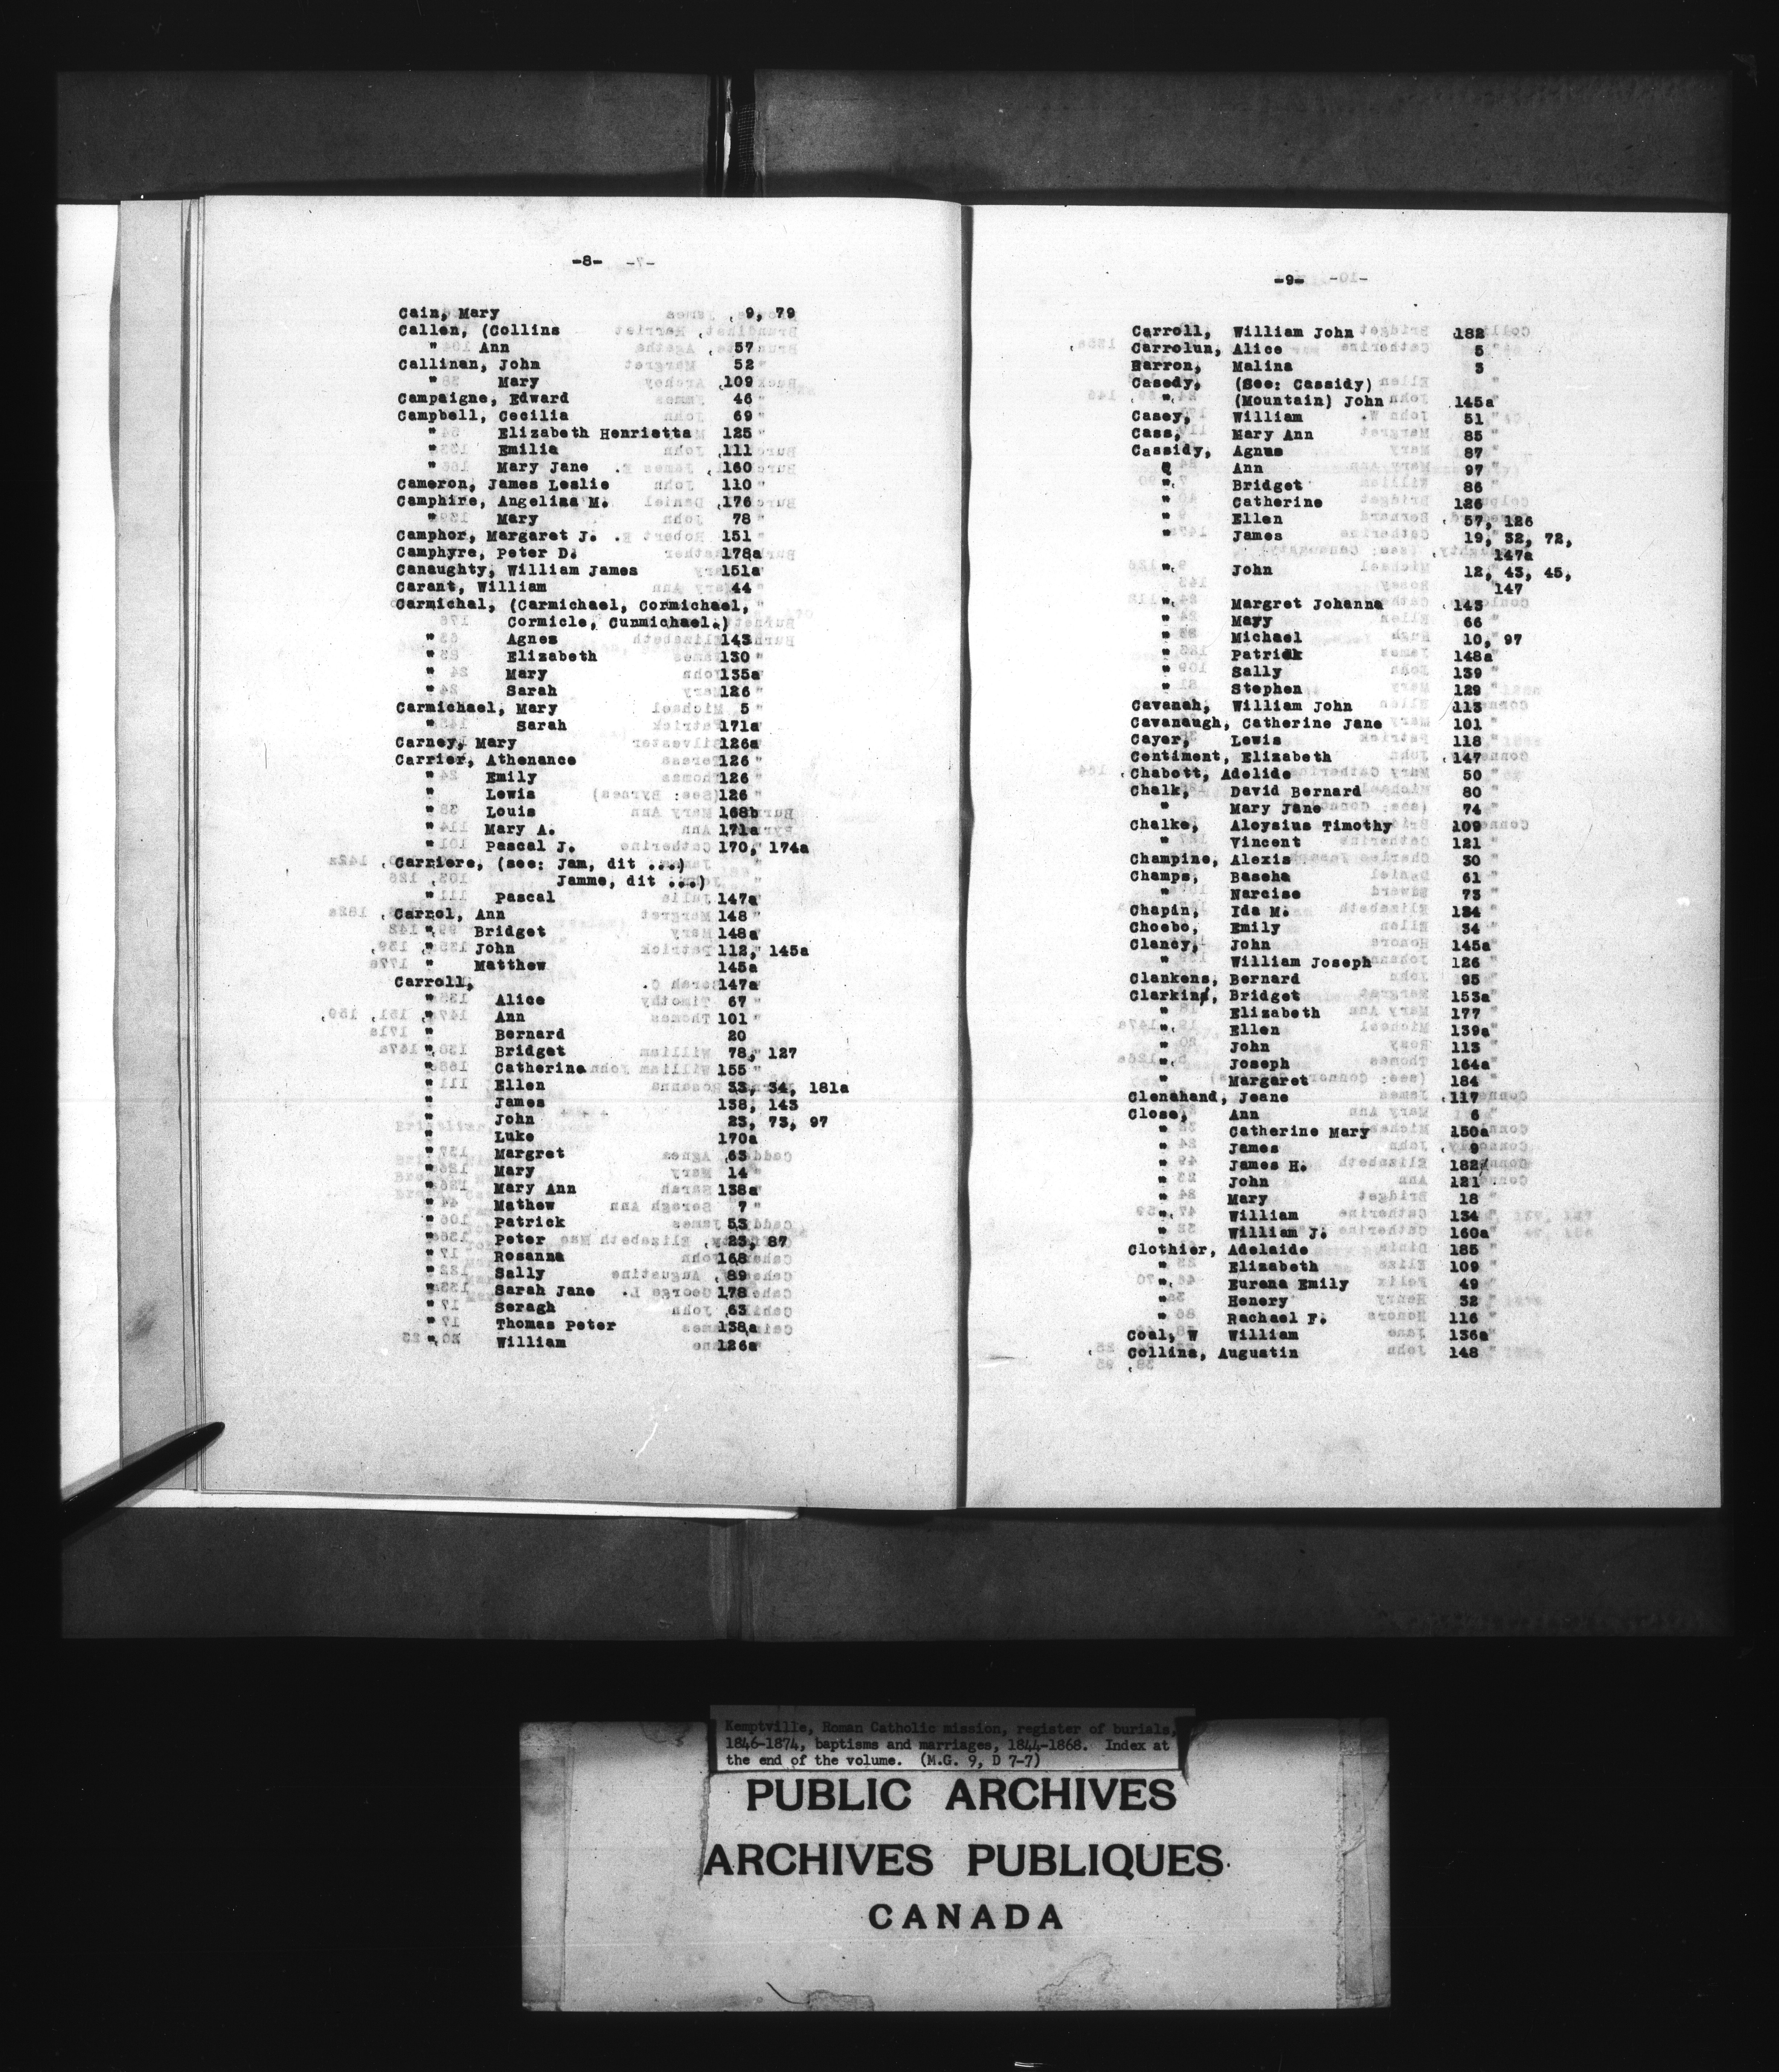 -8-
Cain, Mary 9, 79
Callen, (Collins
" Ann 57
Callinan, John 52
" Mary 109
Campaigne, Edward 46
Campbell, Cecilia 69
" Elizabeth Henrietta 125
" Emilia 111
" Mary Jane 160
Cameron, James Leslie 110
Camphire, Angelina M. 176
" Mary 78
Camphor, Margaret J. 151
Camphyre, Peter D. 178a
Canaughty, William James 151a
Carant, William 44
Carmichal, (Carmichael, Cormichael,
Cormicle, Cunmichael.)
" Agnes 143
" Elizabeth 130
" Mary 135a
" Sarah 126
Carmichael, Mary 5
" Sarah 171a
Carney, Mary 126a
Carrier, Athenance 126
" Emily 126
" Lewis 126
" Louis 168b
" Mary A. 171a
" Pascal J. 170, 174a
Carriere, (see: Jam, dit ...)
Jamme, dit ...)
" Pascal 147a
Carrol, Ann 148
" Bridget 148a
" John 112, 145a
" Matthew 145a
Carroll, 147a
" Alice 67
" Ann 101
" Bernard 20
" Bridget 78, 127
" Catherine 155
" Ellen 33, 34, 181a
" James 138, 143
" John 23, 73, 97
" Luke 170a
" Margret 63
" Mary 14
" Mary Ann 138a
" Mathew 7
" Patrick 53
" Peter 23, 87
" Rosanna 168
" Sally 89
" Sarah Jane 178
" Seragh 63
" Thomas Peter 138a
" William 126a
-9-
Carroll, William John 182
Carrolun, Alice 5
Barron, Malina 3
Casedy, (See: Cassidy)
" (Mountain) John 145a
Casey, William 51
Cass, Mary Ann 85
Cassidy, Agnus 87
" Ann 97
" Bridget 86
" Catherine 126
" Ellen 57, 126
" James 19, 32, 72,
147a
" John 12, 43, 45,
147
" Margret Johanna 143
" Mary 66
" Michael 10, 97
" Patrick 148a
" Sally 139
" Stephen 129
Cavanah, William John 113
Cavanaugh, Catherine Jane 101
Cayer, Lewis 118
Centiment, Elizabeth 147
Chabott, Adelide 50
Chalk, David Bernard 80
" Mary Jane 74
Chalke, Aloysius Timothy 109
" Vincent 121
Champine, Alexis 30
Champs, Baseha 61
" Narcise 73
Chapin, Ida M. 184
Choebo, Emily 34
Clancy, John 145a
" William Joseph 126
Clankens, Bernard 95
Clarkins, Bridget 153a
" Elizabeth 177
" Ellen 139a
" John 113
" Joseph 164a
" Margaret 184
Clenahand, Jeane 117
Close, Ann 6
" Catherine Mary 150a
" James 9
" James H. 182
" John 121
" Mary 18
" William 134
" William J. 160a
Clothier, Adelaide 185
" Elizabeth 109
" Eurena Emily 49
" Henery 32
" Rachael F. 116
Coal, W William 136a
Collins, Augustin 148
Kemptville, Roman Catholic mission, register of burials,
1846-1874, baptisms and marriages, 1844-1868. Index at
the end of the volume. (M.G. 9, D 7-7)
PUBLIC ARCHIVES
ARCHIVES PUBLIQUES
CANADA